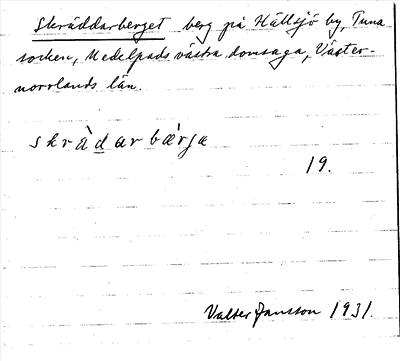 Skräddarberget berg på Hällsjö by, Tuna
socken, Medelpads västra domsaga, Väster-
norrlands län.
skràdar bærja
19.
Valter Jansson 1931.